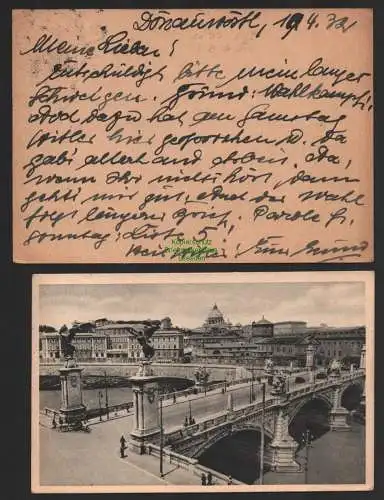 Donauwörth, 19.4.32
Meine Lieben!
Entschuldigt bitte mein langes
Schweigen. Grund: Wahlkampf!
Und dazu hat am Samstag
Hitler hier gesprochen u. da
gabs allerhand Arbeit. Ja,
wenn Ihr nichts hört, dann
gehts mir gut. Nach der Wahl
folgt längerer Brief. Parole f.
Sonntag: Liste 5!